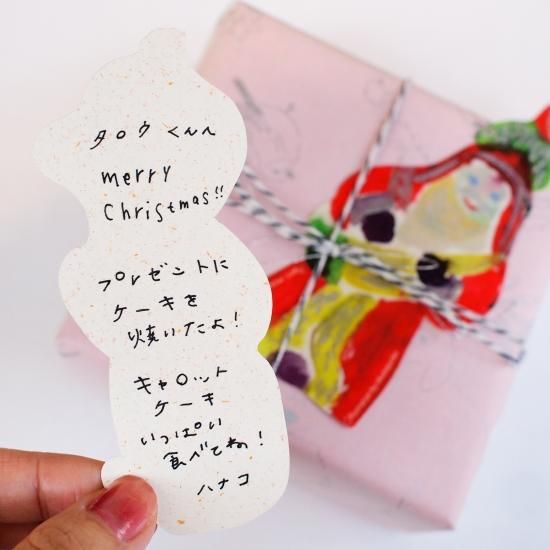 タロウくんへ
merry
Christmas!!
プレゼントに
ケーキを
焼いたよ!
キャロット
ケーキ
いっぱい
食べてね!
ハナコ